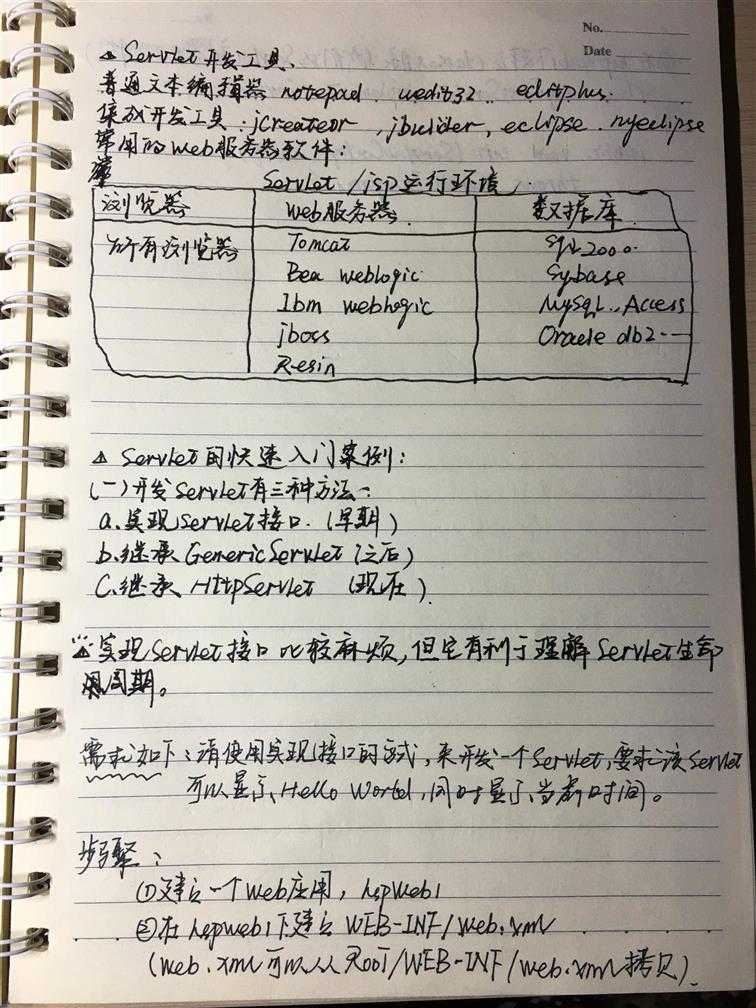 No.
Date
△ Servlet开发工具.
普通文本编辑器 notepad. uedit32. editplus.
集成开发工具. jcreateor, jbuilder, eclipse. myeclipse
常用的web服务器软件:
Servlet/jsp运行环境.
浏览器 Web服务器. 数据库
所有浏览器 Tomcat Sql2000.
Bea weblogic Sybase
Ibm weblogic MySql..Access
jboss Oracle db2--
Resin
△ Servlet的快速入门案例:
(一)开发Servlet有三种方法:
a.实现Servlet接口.(早期)
b.继承GenericServlet(之后)
C.继承HttpServlet (现在).
△实现Servlet接口比较麻烦,但它有利于理解Servlet生命
周期。
需求如下:请使用实现接口的方式,来开发一个Servlet,要求该Servlet
可以显示Hello World,同时显示当前时间。
步骤:
①建立一个web应用, hspweb1
②在hspweb1下建立 WEB-INF/web.xml
(web.xml可以从ROOT/WEB-INF/web.xml拷贝).